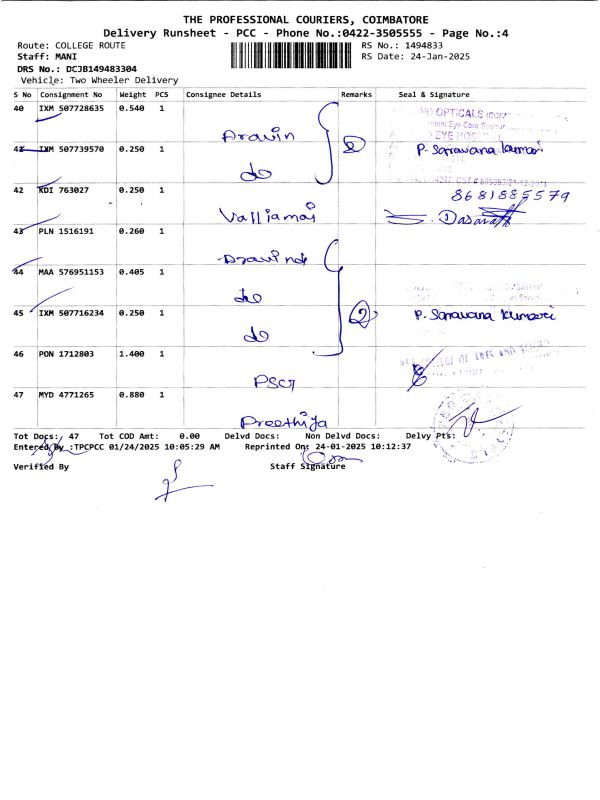 THE PROFESSIONAL COURIERS, COIMBATORE
Delivery Runsheet - PCC - Phone No.:0422-3505555 - Page No.:4
Route: COLLEGE ROUTE RS No.: 1494833
Staff: MANI RS Date: 24-Jan-2025
DRS No.: DCJB149483304
Vehicle: Two Wheeler Delivery
S No Consignment No Weight PCS Consignee Details Remarks Seal & Signature
40 IXM 507728635 0.540 1
OPTICALS
Eye Care
Aravin
EYE
41 IXM 507739570 0.250 1 P. Saravana Kumari
do
42 KDI 763027 0.250 1 8681885579
Valliamai Dasarath
43 PLN 1516191 0.260 1
Aravind
44 MAA 576951153 0.405 1
do
45 IXM 507716234 0.250 1 2 P. Saravana Kumari
do
46 PON 1712803 1.400 1 OF ARTS AND
PSG
47 MYD 4771265 0.880 1
Preethija
Tot Docs: 47 Tot COD Amt: 0.00 Delvd Docs: Non Delvd Docs: Delvy Pts:
Entered By :TPCPCC 01/24/2025 10:05:29 AM Reprinted On: 24-01-2025 10:12:37
Verified By Staff Signature